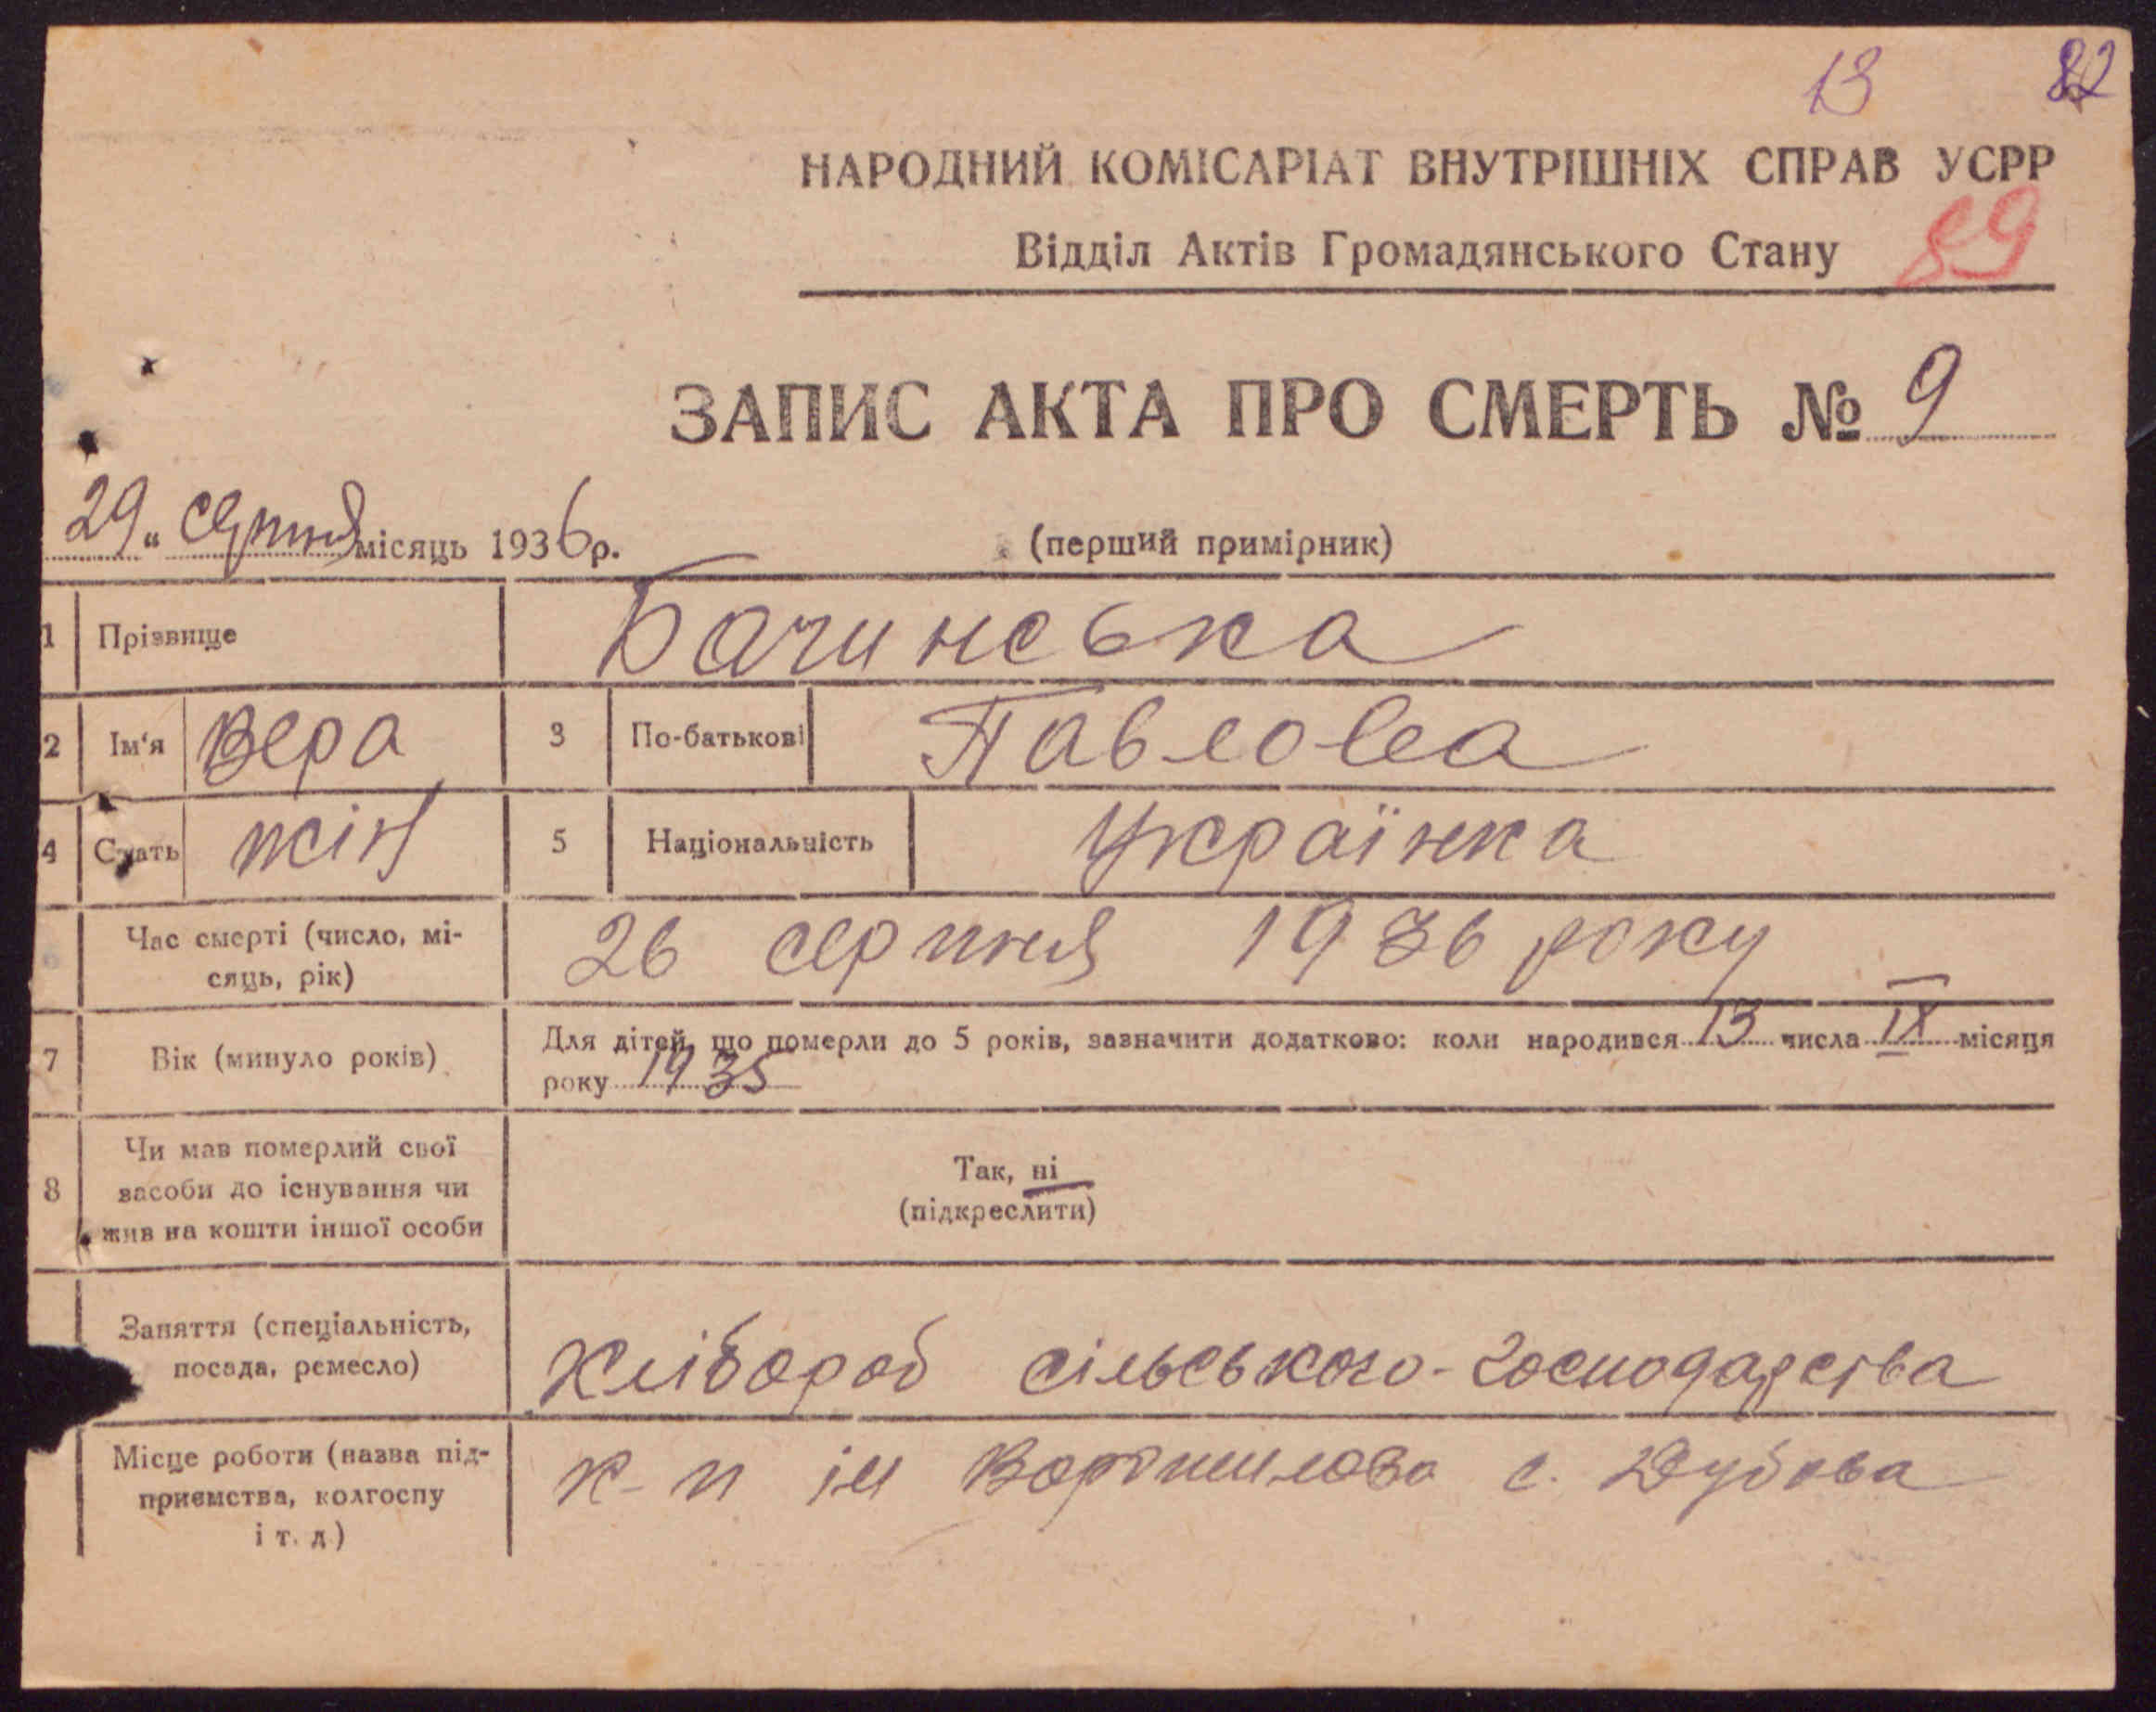 13 82
НАРОДНИЙ КОМІСАРІАТ ВНУТРІШНІХ СПРАВ УСРР
Відділ Актів Громадянського Стану 89
ЗАПИС АКТА ПРО СМЕРТЬ № 9
29 " серпня місяць 1936 р. (перший примірник)
1 Прізвище Бачинська
2 Ім'я Вера 3 По-батькові Павловна
4 Стать жін 5 Національність Українка
Час смерті (число, мі-
сяць, рік) 26 серпня 1936 року
7 Вік (минуло років) Для дітей, що померли до 5 років, зазначити додатково: коли народився 13 числа IX місяця
року 1935
8 Чи мав померлий свої
засоби до існування чи
жив на кошти іншої особи
Так, ні
(підкреслити)
Заняття (спеціальність,
посада, ремесло) Хлібороб сільського-господарства
Місце роботи (назва під-
приємства, колгоспу
і т. д) к-п ім Ворошилова с. Дубова